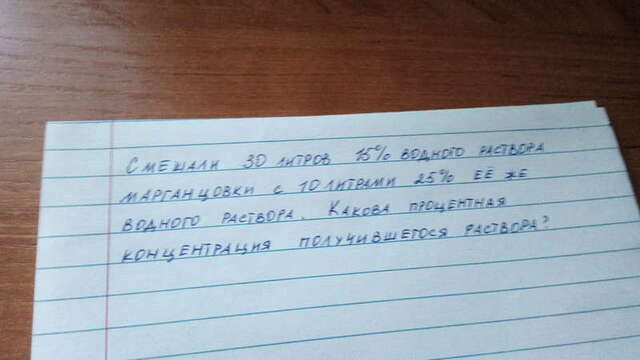 Смешали 30 литров 15% водного раствора
марганцовки с 10 литрами 25% её же
водного раствора. Какова процентная
концентрация получившегося раствора?